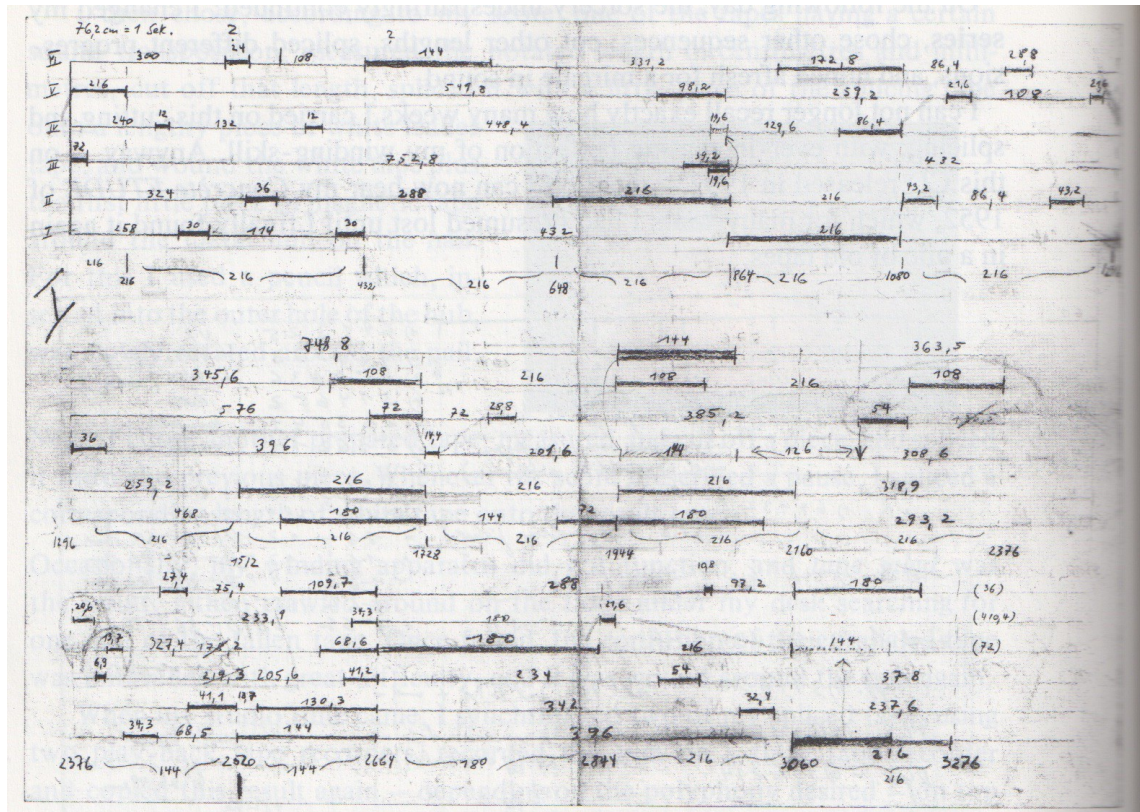 76,2 cm = 1 Sek.
2 ?
VI 300 108 144 331,2 172,8 86,4 28,8
V 216 541,8 98,2 259,2 21,6 108 21,6
IV 240 12 132 12 448,4 19,6 129,6 86,4
III 72 752,8 39,2 432
19,6
II 324 36 288 216 216 43,2 86,4 43,2
I 258 30 114 30 432 216
216 216 216 216 864 216 1080 216 1296
216 432 648
748,8 144 363,5
345,6 108 216 108 216 108
576 72 72 28,8 385,2 54
36 396 14,4 201,6 144 126 308,6
259,2 216 216 216 318,9
468 180 144 72 180 293,2
1296 216 216 216 216 216 2376
1512 1728 1944 2160
27,4 75,4 109,7 288 10,8 97,2 180 (36)
20,6 233,1 34,3 180 21,6 (410,4)
13,7 327,4 178,2 68,6 180 216 144 (72)
6,9 219,3 205,6 41,2 234 54 378
41,1 13,7 130,3 342 32,4 237,6
34,3 68,5 144 396 216
2376 144 2520 144 2664 180 2844 216 3060 216 3276